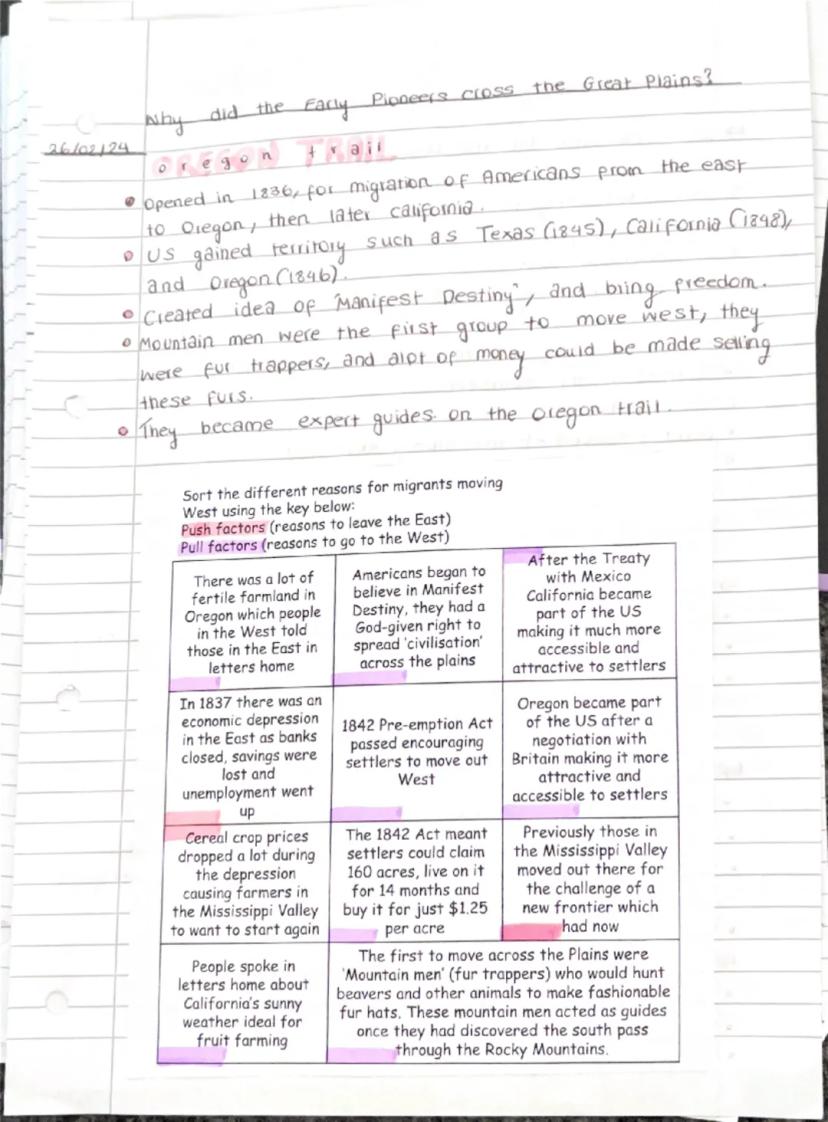 Why did the Early Pioneers cross the Great Plains?
26/02/24
OREGON TRAIL
oregon trail
• Opened in 1836, for migration of Americans from the east
to Oregon, then later california.
• US gained territory such as Texas (1845), California (1848),
and Oregon (1846).
• Created idea of "Manifest Destiny", and bring freedom.
• Mountain men were the first group to move west, they
were fur trappers, and alot of money could be made selling
these furs.
• They became expert guides on the oregon trail.
Sort the different reasons for migrants moving
West using the key below:
Push factors (reasons to leave the East)
Pull factors (reasons to go to the West)
There was a lot of
fertile farmland in
Oregon which people
in the West told
those in the East in
letters home
Americans began to
believe in Manifest
Destiny, they had a
God-given right to
spread 'civilisation'
across the plains
After the Treaty
with Mexico
California became
part of the US
making it much more
accessible and
attractive to settlers
In 1837 there was an
economic depression
in the East as banks
closed, savings were
lost and
unemployment went
up
1842 Pre-emption Act
passed encouraging
settlers to move out
West
Oregon became part
of the US after a
negotiation with
Britain making it more
attractive and
accessible to settlers
Cereal crop prices
dropped a lot during
the depression
causing farmers in
the Mississippi Valley
to want to start again
The 1842 Act meant
settlers could claim
160 acres, live on it
for 14 months and
buy it for just $1.25
per acre
Previously those in
the Mississippi Valley
moved out there for
the challenge of a
new frontier which
had now
People spoke in
letters home about
California's sunny
weather ideal for
fruit farming
The first to move across the Plains were
'Mountain men' (fur trappers) who would hunt
beavers and other animals to make fashionable
fur hats. These mountain men acted as guides
once they had discovered the south pass
through the Rocky Mountains.